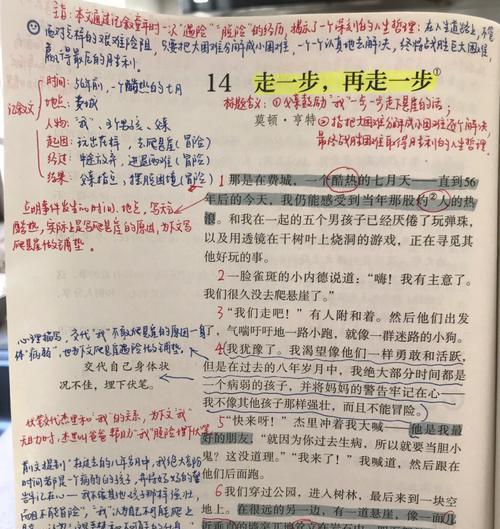 主旨:本文通过记叙童年时一次"遇险""脱险"的经历,揭示了一个深刻的人生哲理:在人生道路上,不管
面对怎样的艰难险阻,只要把大困难分解成小困难,一个一个认真地去解决,终将战胜巨大困难,
赢得最后的胜利。
14 走一步,再走一步①
莫顿·亨特
标题含义:①父亲鼓励"我"一步一步走下悬崖的话;
②指把大困难分解成小困难逐个解决,
最终战胜困难取得胜利的人生哲理。
记叙文
时间:57年前,一个酷热的七月
地点:费城
人物:"我"、
起因:玩出花样,去爬悬崖(冒险)
经过:中途放弃,进退两难(遇险)
结果:父亲指点,摆脱困境(脱险)
点明事件发生的时间、地点,写天气
酷热,实际上是写爬悬崖的原因,为下文写
爬悬崖作铺垫。
1 那是在费城,一个酷热的七月天——直到56
年后的今天,我仍能感受到当年那股灼②人的热
浪。和我在一起的五个男孩子已经厌倦了玩弹珠,
以及用透镜在干树叶上烧洞的游戏,正在寻觅其
他好玩的事。
2 一脸雀斑的小内德说道:"嗨!我有主意了。
我们很久没去爬悬崖了。"
3 "我们走吧!"有人附和着。然后他们出发
了,气喘吁吁地一路小跑,就像一群迷路的小狗。
4 我犹豫了。我渴望像他们一样勇敢和活跃,
但是在过去的八年岁月中,我绝大部分时间都是
一个病弱的孩子,并将妈妈的警告牢记在心——
我不像其他孩子那样强壮,而且不能冒险。
心理描写,交代"我"不敢爬悬崖的原因—身
体"病弱",也为下文爬悬崖遇险作铺垫。
交代自己身体状
况不佳,埋下伏笔。
5 "快来呀!"杰里冲着我大喊——他是我最
好的朋友,"就因为你过去生病,所以就要当胆小
鬼?这没道理。""我来了!"我喊道,然后跟在
他们后面跑。
伏笔交代杰里和"我"的关系,为下文"我"
无助时,杰里叫爸爸帮助"我"脱险埋下伏笔
6 我们穿过公园,进入树林,最后来到一块空
地上。在很远的另一边,有一道悬崖,像一面
近垂直的墙突兀地耸立在岩石中
前文提到"在过去的八年岁月中,我绝大部分
时间都是一个病弱的孩子,并将妈妈的警
告牢记在心—我不像其他孩子那样强壮,
而且不能冒险"